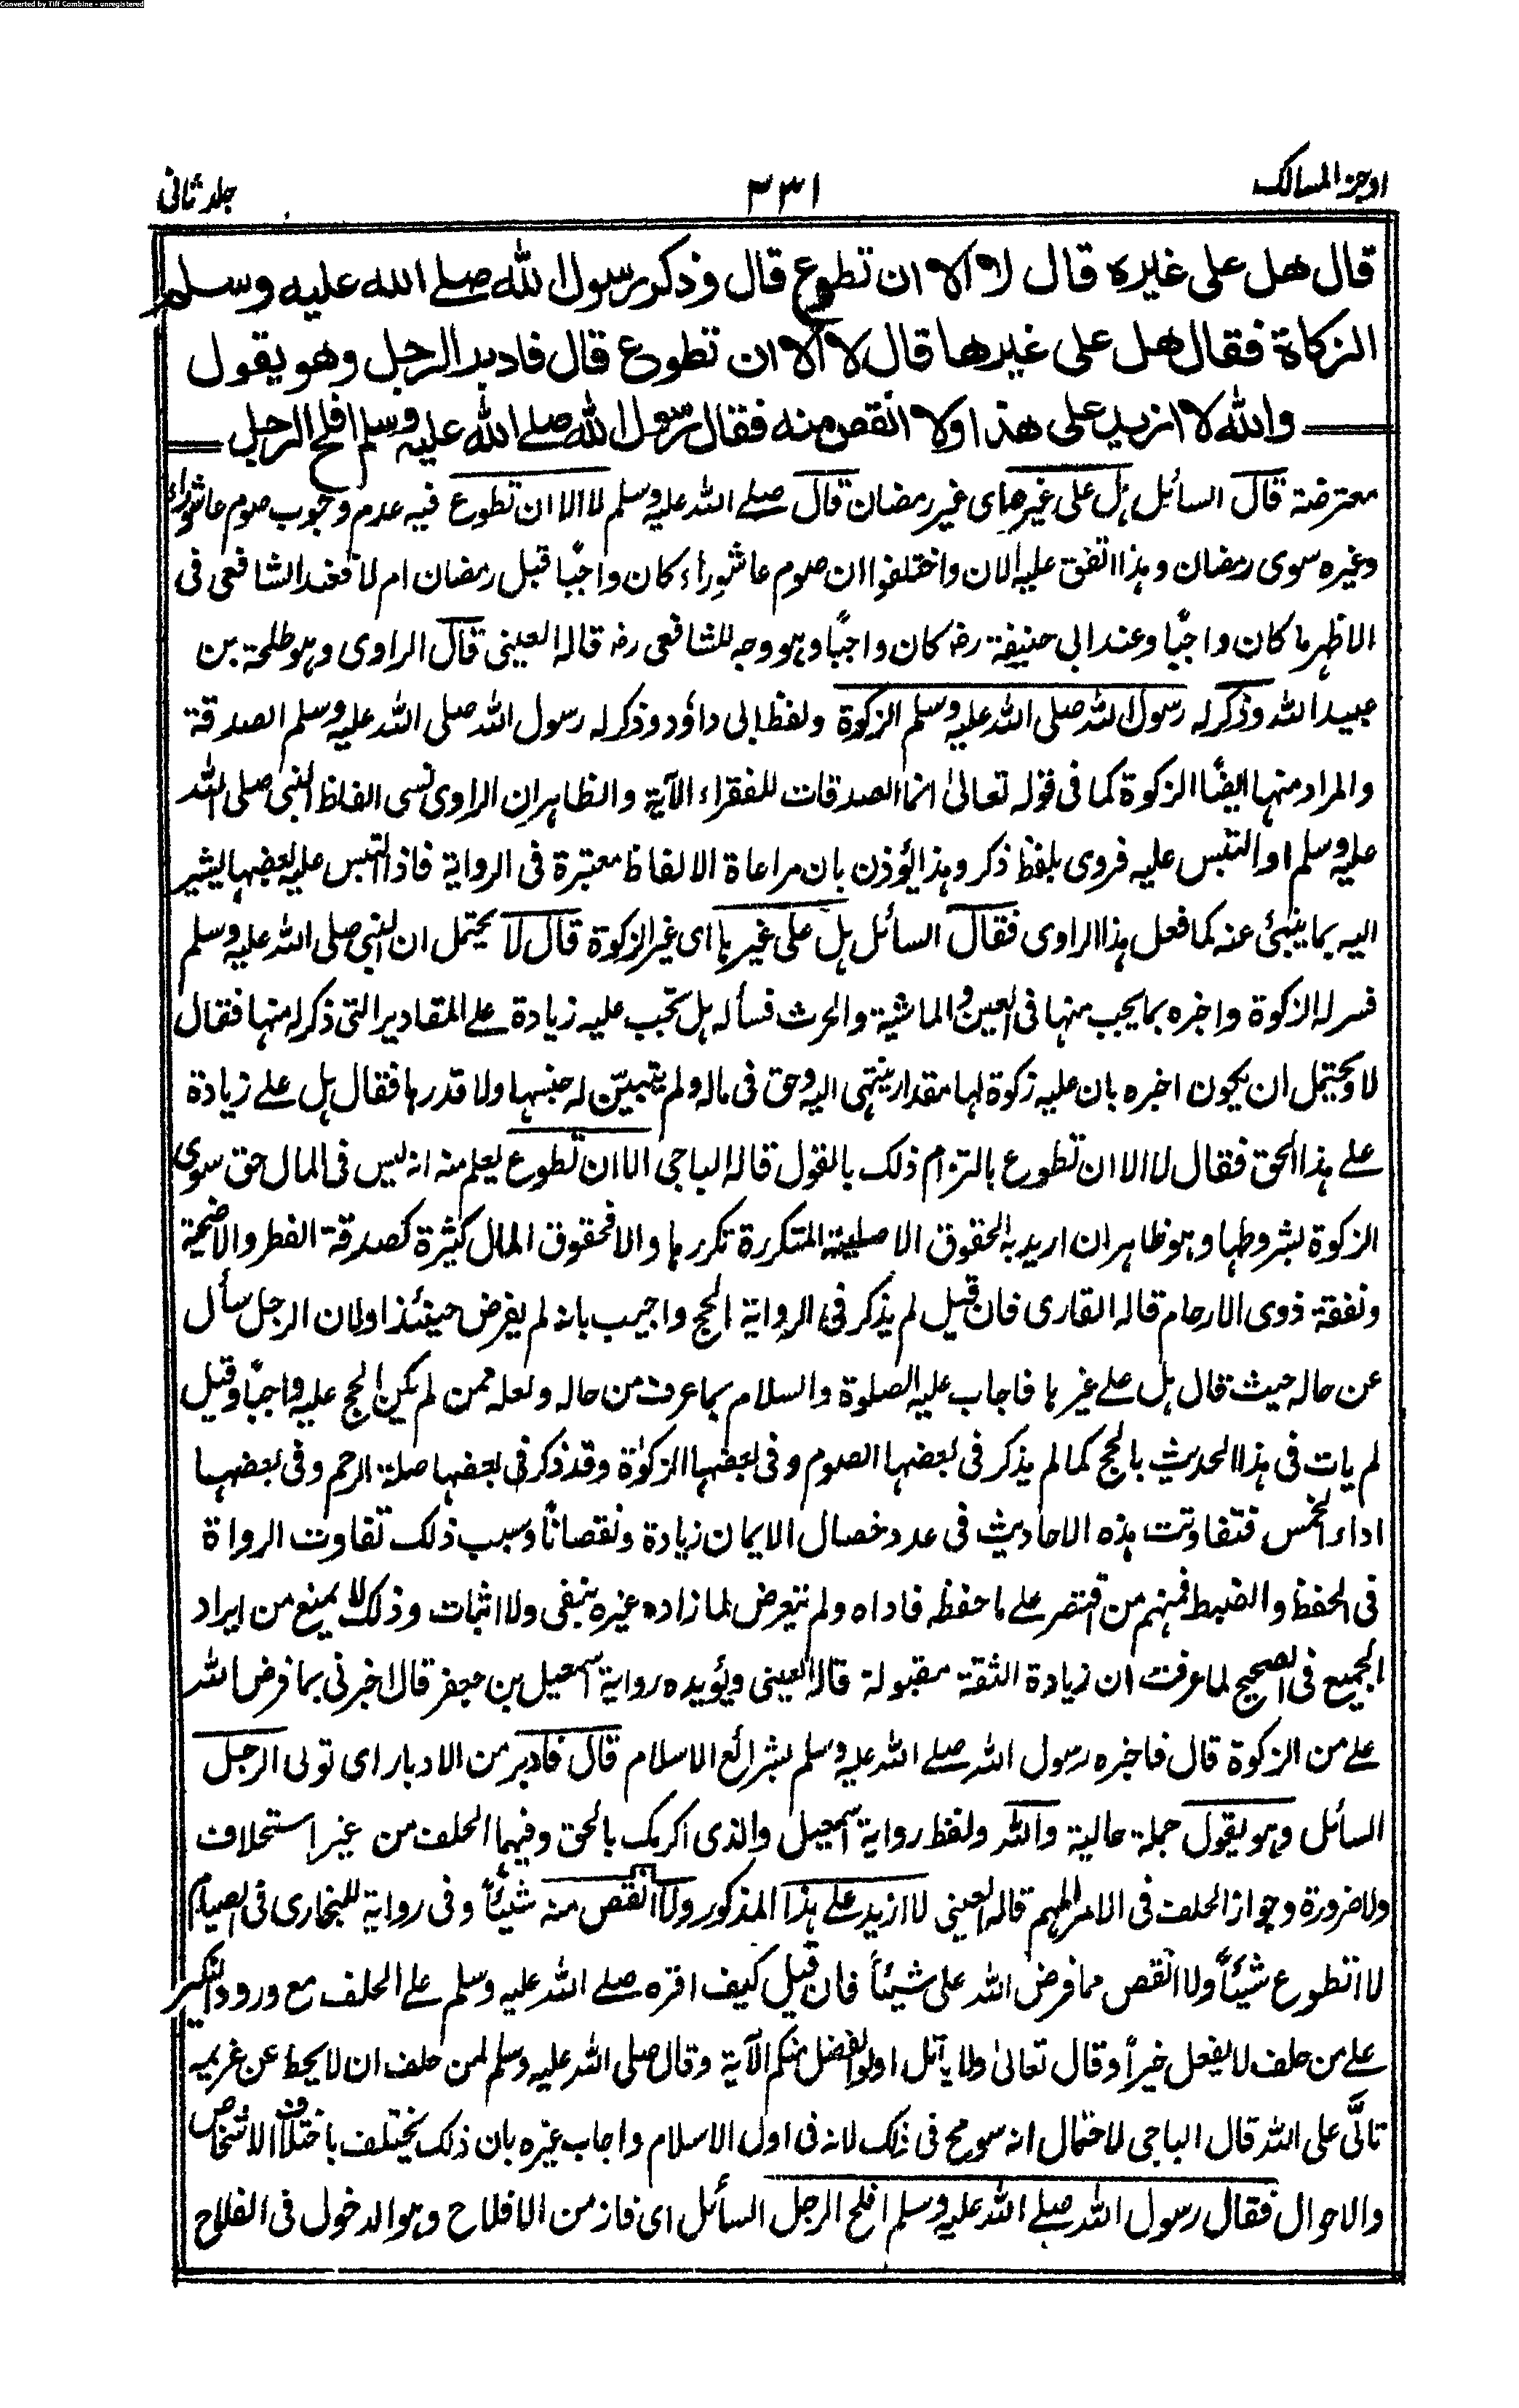 Converted by Tiff Combine - unregistered
اوجز المسالك ٣٣١ جلد ثانی
قال هل على غيره قال لا الا ان تطوع قال وذكر رسول الله صلے الله عليه وسلم
الزكاة فقال هل على غيرها قال لا الا ان تطوع قال فادبر الرجل وهو يقول
والله لا ازيد على هذا ولا انقص منه فقال رسول الله صلے الله عليه وسلم افلح الرجل
معترضة قال السائل هل على غيرها اى غير رمضان قال صلے الله عليه وسلم لا الا ان تطوع فيه عدم وجوب صوم عاشوراء
وغيره سوى رمضان وهذا اتفق عليه الان واختلفوا ان صوم عاشوراء كان واجبًا قبل رمضان ام لا فعند الشافعى فى
الاظهر ما كان واجبًا وعند ابى حنيفة رض كان واجبًا وهو وجه للشافعى رض قاله العينى قال الراوى وهو طلحة بن
عبيد الله وذكر له رسول الله صلى الله عليه وسلم الزكوة ولفظ ابى داؤد وذكر له رسول الله صلى الله عليه وسلم الصدقة
والمراد منها ايضًا الزكوة كما فى قوله تعالىٰ انما الصدقات للفقراء الآية والظاهر ان الراوى نسى الفاظ النبى صلى الله
عليه وسلم او التبس عليه فروى بلفظ ذكر وهذا يؤذن بان مراعاة الالفاظ معتبرة فى الرواية فاذا التبس عليه بعضها يشير
اليه بما ينبئ عنه كما فعل هذا الراوى فقال السائل هل على غيرها اى غير الزكوة قال لا يحتمل ان النبى صلى الله عليه وسلم
فسر له الزكوة واخبره بما يجب منها فى العين والماشية والحرث فسأله هل تجب عليه زيادة علے المقادير التى ذكر له منها فقال
لا ويحتمل ان يكون اخبره بان عليه زكوة لها مقدار ينتهى اليه وحق فى ماله ولم يتبيّن له جنسها ولا قدرها فقال هل علے زيادة
علے هذا الحق فقال لا الا ان تطوع بالتزام ذلك بالقول قاله الباجى الا ان تطوع يعلم منه انه ليس فى المال حق سوى
الزكوة بشروطها وهو ظاهر ان اريد به الحقوق الاصلية المتكررة تكررها والا فحقوق المال كثيرة كصدقة الفطر والاضحية
ونفقة ذوى الارحام قاله القارى فان قيل لم يذكر فى الرواية الحج واجيب بانه لم يفرض حينئذ اولان الرجل سأل
عن حاله حيث قال هل علے غيرها فاجاب عليه الصلوة والسلام بما عرف من حاله ولعله ممن لم يكن الحج عليه واجبًا وقيل
لم يات فى هذا الحديث بالحج كما لم يذكر فى بعضها الصوم وفى بعضها الزكوٰة وقد ذكر فى بعضها صلة الرحم وفى بعضها
اداء الخمس فتفاوتت هذه الاحاديث فى عدد خصال الايمان زيادة ونقصانًا وسبب ذلك تفاوت الرواة
فى الحفظ والضبط فمنهم من اقتصر علے ما حفظه فاداه ولم يتعرض لما زاده غيره بنفى ولا اثبات وذلك لا يمنع من ايراد
الجميع فى الصحيح لما عرفت ان زيادة الثقة مقبولة قاله العينى ويؤيده رواية اسمعيل بن جعفر قال اخبرنى بما فرض الله
علے من الزكوة قال فاخبره رسول الله صلے الله عليه وسلم بشرائع الاسلام قال فادبر من الادبار اى تولى الرجل
السائل وهو يقول جملة حالية والله ولفظ رواية اسمعيل والذى اكرمك بالحق وفيهما الحلف من غير استحلاف
ولا ضرورة وجواز الحلف فى الامر المهم قاله العينى لا ازيد علے هذا المذكور ولا انقص منه شيئاً وفى رواية للبخارى فى الصيام
لا اتطوع شيئاً ولا انقص مما فرض الله على شيئاً فان قيل كيف اقره صلے الله عليه وسلم على الحلف مع ورود النكير
علے من حلف لا يفعل خيراً وقال تعالىٰ ولا يأتل اولوا الفضل منكم الآية وقال صلى الله عليه وسلم لمن حلف ان لا يحط عن غريمه
تالّى على الله قال الباجى لاحتمال انه سومح فى ذلك لانه فى اول الاسلام واجاب غيره بان ذلك يختلف باختلاف الاشخاص
والاحوال فقال رسول الله صلے الله عليه وسلم افلح الرجل السائل اى فاز من الافلاح وهو الدخول فى الفلاح